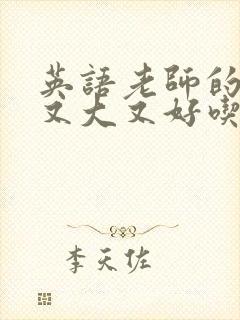 英語老師的
又大又好喫
李天佐